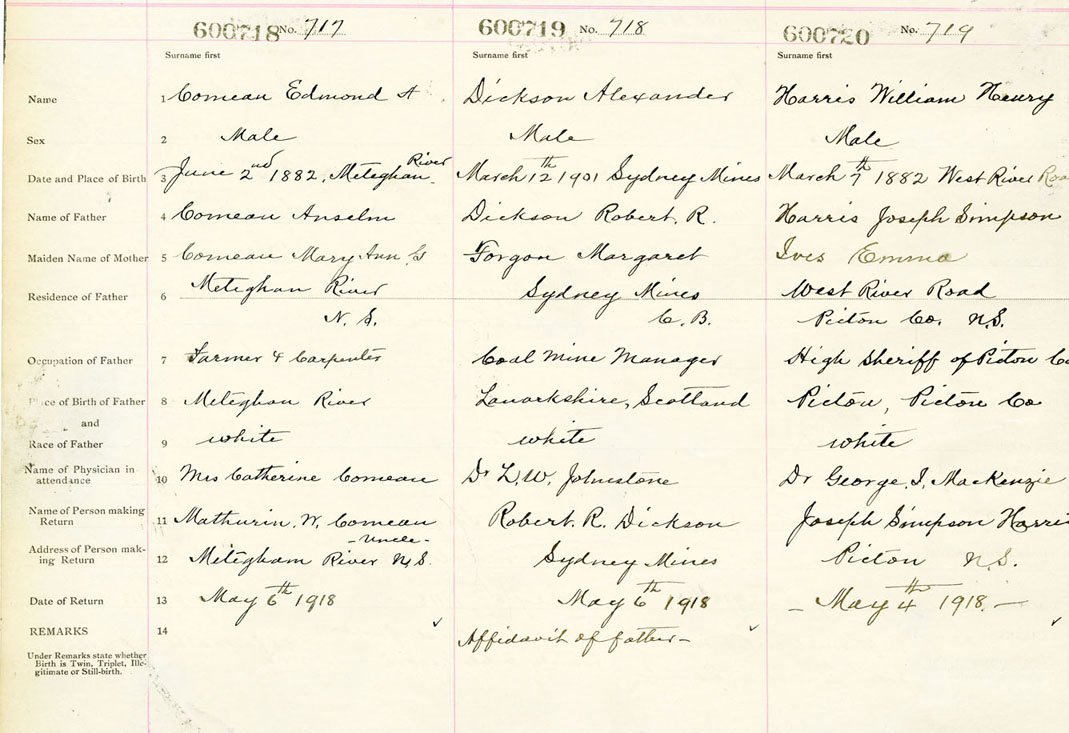 600718 No. 717 600719 No. 718 600720 No. 719
Surname first Surname first Surname first
Name 1 Comeau Edmond A Dickson Alexander Harris William Henry
Sex 2 Male Male Male
Date and Place of Birth 3 June 2nd 1882, Meteghan River March 12th 1901 Sydney Mines March 7th 1882 West River Road
Name of Father 4 Comeau Anselm Dickson Robert. R. Harris Joseph Simpson
Maiden Name of Mother 5 Comeau Mary Ann G Forgon Margaret Ives Emma
Residence of Father 6 Meteghan River Sydney Mines West River Road
N. S. C. B. Picton Co. N.S.
Occupation of Father 7 Farmer & Carpenter Coal Mine Manager High Sheriff of Picton Co
Place of Birth of Father 8 Meteghan River Lanarkshire, Scotland Picton, Picton Co
and
Race of Father 9 white white white
Name of Physician in
attendance 10 Mrs Catherine Comeau Dr L.W. Johnstone Dr George. I. MacKenzie
Name of Person making
Return 11 Mathurin. W. Comeau Robert. R. Dickson Joseph Simpson Harris
- Uncle -
Address of Person mak-
ing Return 12 Meteghan River N.S. Sydney Mines Picton N.S.
Date of Return 13 May 6th 1918 May 6th 1918 - May 4th 1918. -
REMARKS 14 Affidavit of father -
Under Remarks state whether
Birth is Twin, Triplet, Ille-
gitimate or Still-birth.